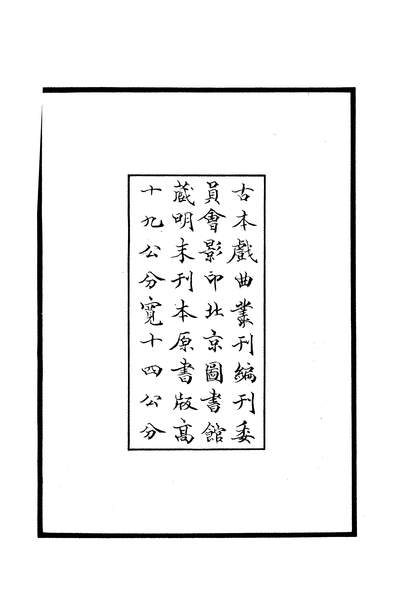 古本戲曲叢刊編刊委
員會影印北京圖書館
藏明末刊本原書版高
十九公分寬十四公分